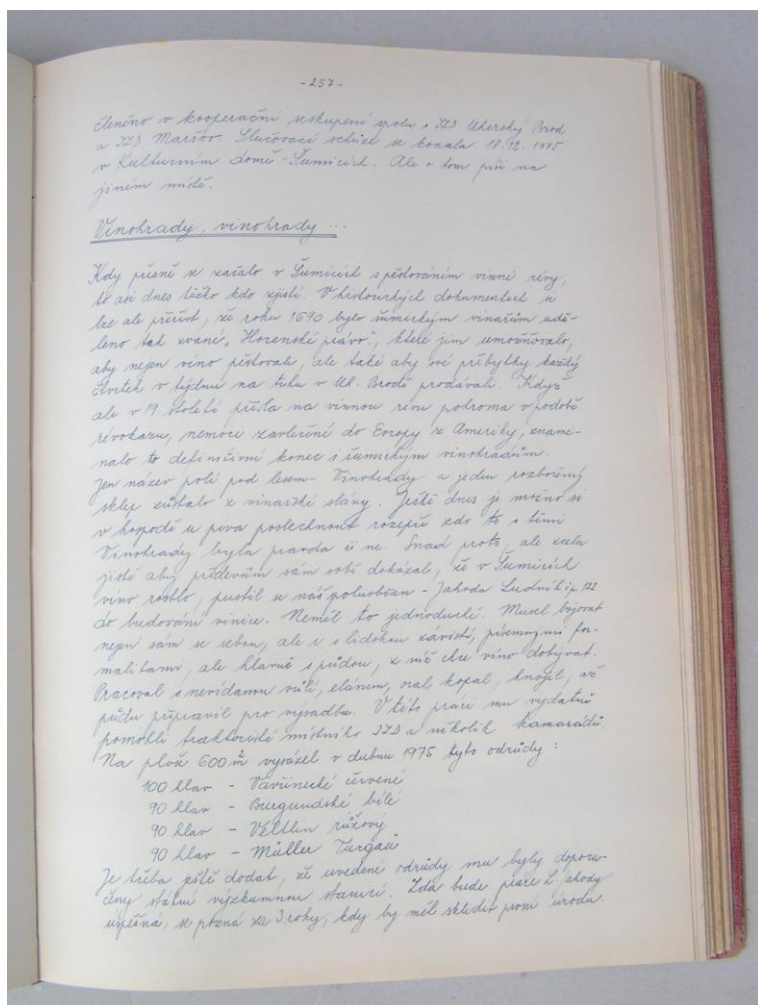 - 257 -
členěno v kooperační seskupení spolu s JZD Uherský Brod
a JZD Maršov. Slučovací schůze se konala 18.12. 1975
v Kulturním domě - Šumicích. Ale o tom píši na
jiném místě.
Vinohrady, vinohrady ...
Kdy přesně se začalo v Šumicích s pěstováním vinné révy,
to asi dnes těžko kdo zjistí. V historických dokumentech se
lze ale přečíst, že roku 1690 bylo šumickým vinařům udě-
leno tak zvané „Horenské právo", které jim umožňovalo,
aby nejen víno pěstovali, ale také aby své přibytky každý
čtvrtek v týdnu na trhu v Uh. Brodě prodávali. Když
ale v 19. století přišla na vinnou révu pohroma v podobě
révokazu, nemoci zavlečené do Evropy z Ameriky, zname-
nalo to definitivní konec i šumickým vinohradům.
Jen název polí pod lesem - Vinohrady a jeden rozbořený
sklep zůstalo z vinařské slávy. Ještě dnes je možno si
v hospodě u piva poslechnout rozepře zdo to s těmi
Vinohrady byla pravda či ne. Snad proto, ale zcela
jistě aby především sám sobě dokázal, že v Šumicích
víno rostlo, pustil se náš spoluobčan - Jahoda Ludvík čp. 122
do budování vinice. Neměl to jednoduché. Musel bojovat
nejen sám se sebou, ale i s lidskou závistí, písemnými for-
malitami, ale hlavně s půdou, z níž chce víno dobývat.
Pracoval s nevídanou vůlí, elánem, oral, kopal, hnojil, až
půdu připravil pro výsadbu. V této práci mu vydatně
pomohli traktoristé místního JZD a několik kamarádů.
Na ploše 600 m² vysázel v dubnu 1975 tyto odrůdy :
100 hlav - Vavřinecké červené
90 hlav - Burgundské bílé
90 hlav - Veltlín růžový
90 hlav - Müller Turgaü
Je třeba ještě dodat, že uvedené odrůdy mu byly doporu-
čeny státní výzkumnou stanicí. Zda bude práce L. Jahody
úspěšná, se pozná za 3 roky, kdy by měl sklidit první úrodu.